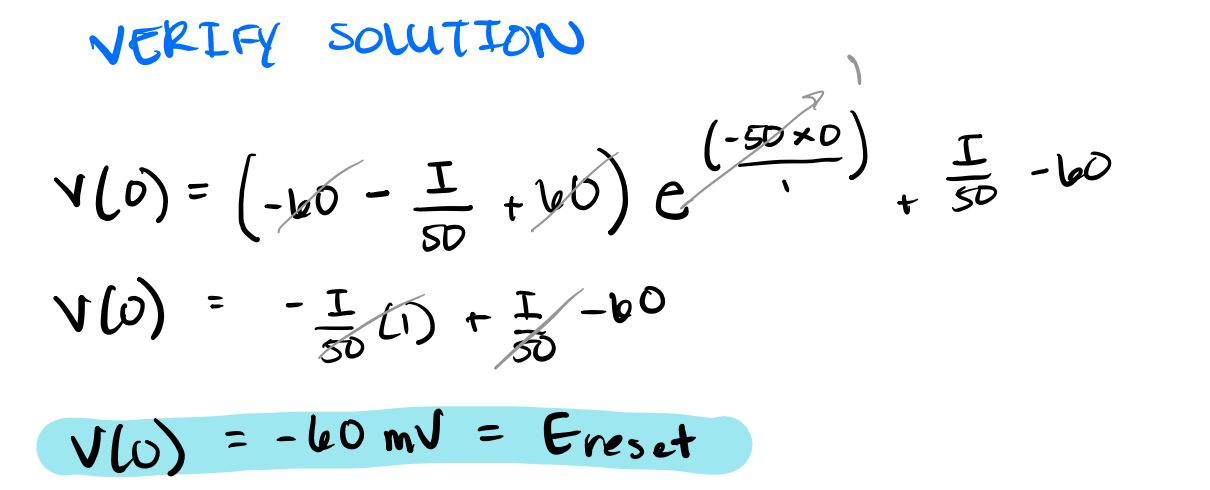 VERIFY SOLUTION
V(0) = (-60 - I/50 + 60) e^((-50×0)/1) 1 + I/50 - 60
V(0) = - I/50 (1) + I/50 - 60
V(0) = -60 mV = Ereset